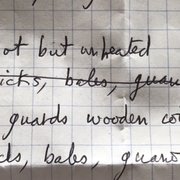 ot but unheated
icks, bales, guan
guards wooden co
cks, bales, guano